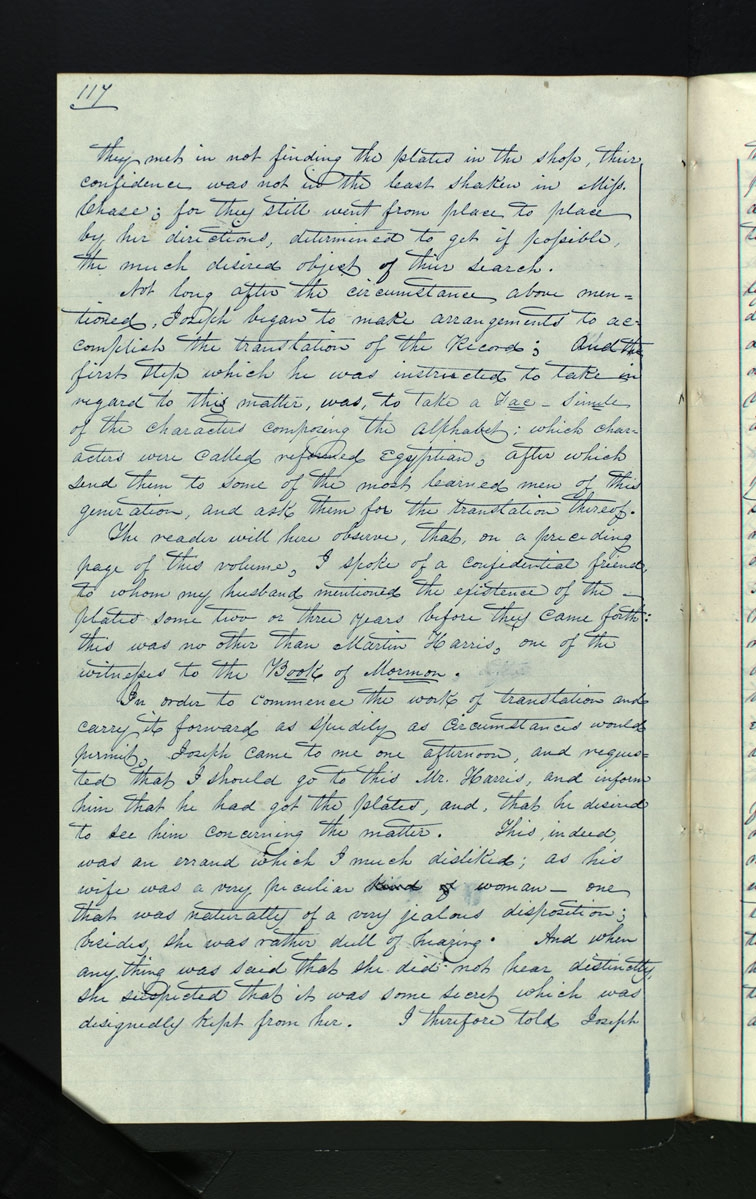 117
they met in not finding the plates in the shop, their
confidence was not in the least shaken in Miss.
Chase; for they still went from place to place
by her directions, determined to get if possible,
the much desired object of their search.
Not long after the circumstance above men=
tioned, Joseph began to make arrangements to ac-
complish the translation of the Record; And the
first step which he was instructed to take in
regard to this matter, was, to take a Fac-Simile
of the characters composing the alphabet; which char-
acters were called reformed Egyptian; after which
send them to some of the most learned men of this
generation, and ask them for the translation thereof.
The reader will here observe, that, on a preceding
page of this volume, I spoke of a confidential friend,
to whom my husband mentioned the existence of the
plates some two or three years before they came forth:
this was no other than Martin Harris, one of the
witnesses to the Book of Mormon.
In order to commence the work of translation and
carry it forward as speedily as circumstances would
permit, Joseph came to me one afternoon, and reques-
ted that I should go to this Mr. Harris, and inform
him that he had got the plates, and, that he desired
to see him concerning the matter. This, indeed,
was an errand which I much disliked; as his
wife was a very peculiar kind of woman— one
that was naturally of a very jealous disposition;
besides, she was rather dull of hearing. And when
any thing was said that she did not hear distinctly,
she suspected that it was some secret which was
designedly kept from her. I therefore told Joseph